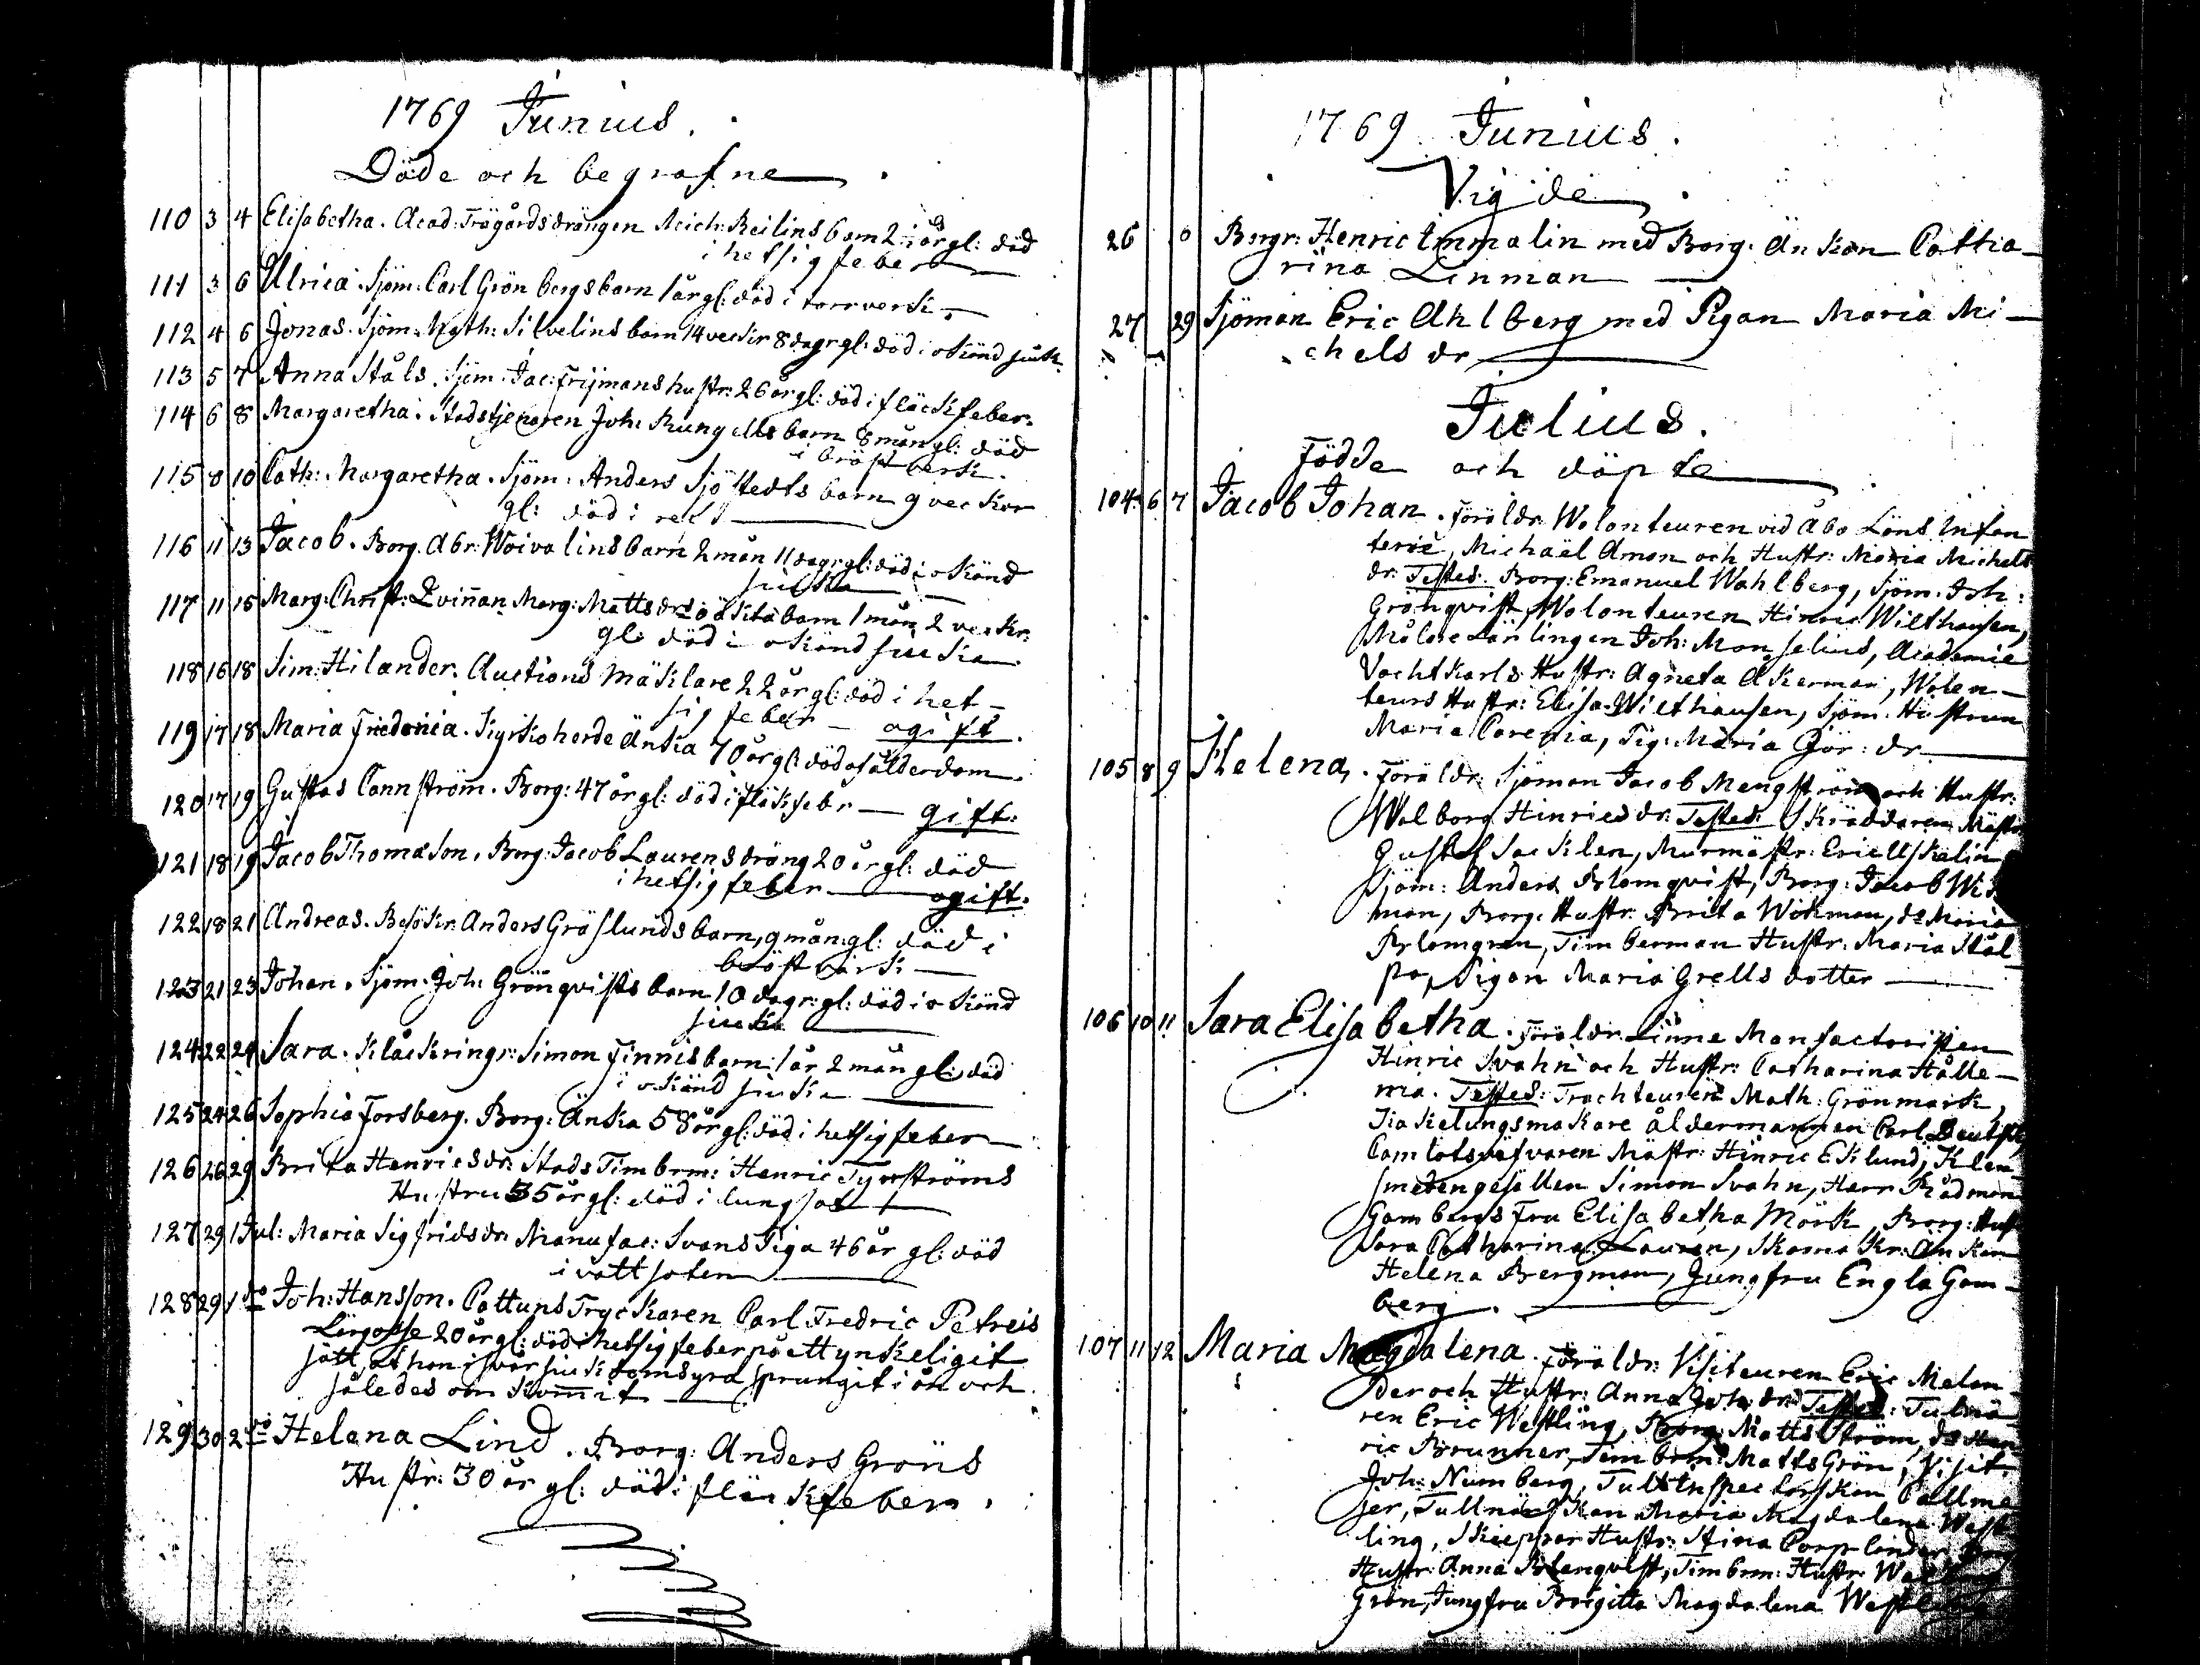 1769 Junius.
Döde och begrafne
110 3 4 Elisabetha. Acad: Trägårdsdrängen Mich: Reilins barn 2½ år gl: död
i hetsig feber
111 3 6 Ulrica. Sjöm: Carl Grönbergs barn 1 år gl: död i torrverk
112 4 6 Jonas. Sjöm: Math: Silvelins barn 14 veckir 8 dagr gl: död i okänd siuk
113 5 7 Anna Ståls. Sjöm: Jac: Frijmans hustr: 26 år gl: död i fläckfeber.
114 6 8 Margaretha. Stadstjenaren Joh: Rungells barn 8 mån gl: död
i bröstverk.
115 8 10 Cath: Margaretha. Sjöm: Anders Sjöstedts barn 9 veckor
gl: död i
116 11 13 Jacob. Borg. Abr: Woivalins barn 2 mån 11 dagr gl: död i okänd
siuka
117 11 15 Marg: Christ: Qvinnan Marg: Mattsdrs oäkta barn 1 mån 2 veckr.
gl: död i okänd siuka
118 16 18 Sim: Hilander. Auctions Mäklare 22 år gl: död i het-
sig feber ogift.
119 17 18 Maria Fredericia. Kyrkioherde Änkia 70 år gl: död af ålderdom.
120 17 19 Gustas Cannström. Borg: 47 år gl: död i fläkfebr gift.
121 18 19 Jacob Thomason. Borg: Jacob Laurens dräng 20 år gl: död
i hetsig feber ogift.
122 18 21 Andreas. Besökr: Anders Gräslunds barn, 9 mån: gl: död i
bröstvärk
123 21 23 Johan. Sjöm: Joh: Grönqvists barn 10 dagr: gl: död i okänd
siuka
124 22 24 Sara. Klåckringr: Simon Finnis barn 1 år 2 mån gl: död
i okänd siuka
125 24 26 Sophia Forsberg. Borg: Änkia 58 år gl: död i hetsig feber
126 26 29 Brita Henricsdr: Stads Timbrm: Henric Tynströms
Hustru 35 år gl: död i lungsot
127 29 1 Jul: Maria Sigfridsdr Manufac: Svans Piga 46 år gl: död
i vattsoten
128 29 1 do Joh: Hansson. Cattuns Tryckaren Carl Fredric Petreis
Lärgosse 20 år gl: död i hetsig feber på ett ynkeligit
sätt, at han i svår siukdoms yra sprungit i ån och
således om kommit
129 30 2 do Helena Lind. Borg: Anders Gröns
Hustr: 30 år gl: död i fläckfebern.
1769 Junius.
Vigde
26 8 Borgr: Henric Immalin med Borg: Änkan Catha-
rina Linman
27 29 Sjöman Eric Ahlberg med Pigan Maria Mi-
chels dr
Julius.
Födde och döpte
104 6 7 Jacob Johan. Föräldr: Wolonteuren vid Åbo Läns Infan
terie, Michaël Aman och Hustr: Maria Michels
dr. Testes: Borg: Emanuel Wahlberg, Sjöm: Joh:
Grönqvist, Wolonteuren Hinric Wilthausen,
Målare Lärlingen Joh: Monselius, Academie
Vachtkarls Hustr: Agneta Åkerman, Wolen-
teurs Hustr: Elisa Wilthausen, Sjöm: Hustrun
Maria Carenia, Pig: Maria Gör: dr
105 8 9 Helena. Föräldr: Sjöman Jacob Mengström och Hustr:
Walborg Hinricsdr: Testes: Skräddaren Mästr
Gustaf Sacklen, Murmästr: Eric Uskelin
Sjöm: Anders Blomqvist, Borg: Jacob Wi
man, Borg: Hustr: Brita Wikman, do Maria
Blomgren, Timberman Hustr: Maria Stål
pa, Pigan Maria Grells dotter
106 10 11 Sara Elisabetha. Föräldr: Linne Manfactoristen
Hinric Svahn och Hustr: Catharina Hålle-
nia. Testes: Tracteuren Math: Grönmark,
Kiakelungsmakare Åldermannen Carl
Camlotsväfvaren Mästr: Hinric Eklund, Klen
smedengesällen Simon Svahn, Herr Rådman
Gambergs Fru Elisabetha Mörk, Borg: Hust
Sara Catharina Lauren, Skomakr: Änkan
Helena Bergman, Jungfru Engla Gam-
berg.
107 11 12 Maria Magdalena. Föräldr: Visiteuren Eric Melan
der och Hustr: Anna Joh: dr. Testes: Tulnä
ren Eric Westling, Borg: Matts Ström, do Hen
ric Brunner, Timbrm: Matts Grön, Visit.
Joh: Numberg, Tull Inspectorskan Callme
jer, Tullnärskan Maria Magdalena West
ling, Skiepper Hustr: Stina Corplander,
Hustr: Anna Blenqvist, Timbrm: Hustr
Grön, Jungfru Brigitta Magdalena Westling